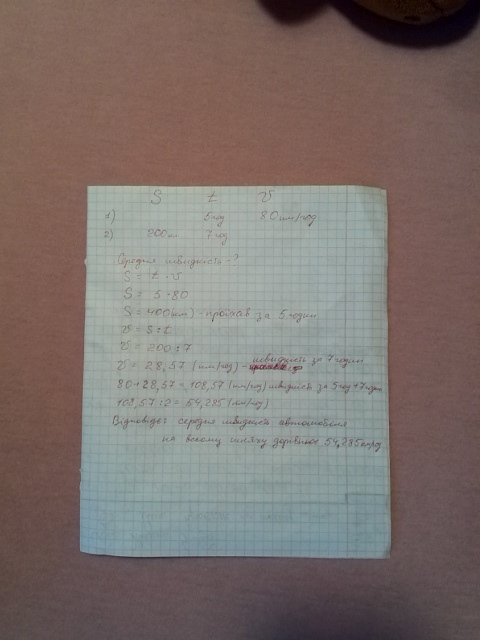 S t v
1) 5 год 80 км/год
2) 200 км 7 год
Середня швидкість - ?
S = t · v
S = 5 · 80
S = 400 (км) - проїхав за 5 годин
v = S : t
v = 200 : 7
v = 28,57 (км/год) - швидкість за 7 годин
80 + 28,57 = 108,57 (км/год) швидкість за 5 год + 7 годин
108,57 : 2 = 54,285 (км/год)
Відповідь: середня швидкість автомобіля
на всьому шляху дорівнює 54,285 км/год.